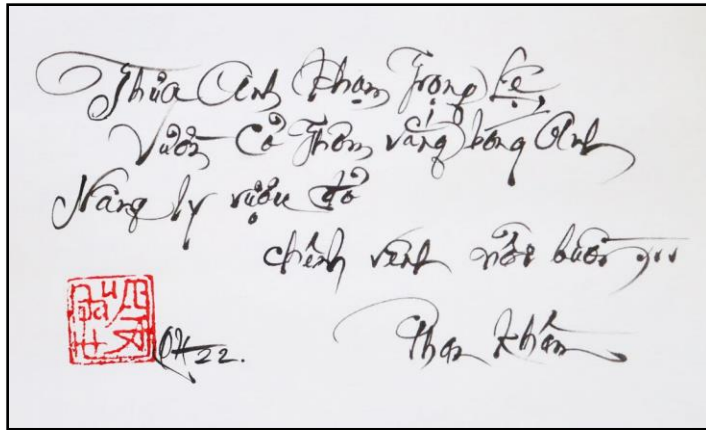 Thưa Anh Phạm Trọng Lệ,
Vườn Cổ Thôn vắng bóng Anh
Nâng ly rượu đỏ
chênh vênh nỗi buồn
04 22.
Phan Khâm